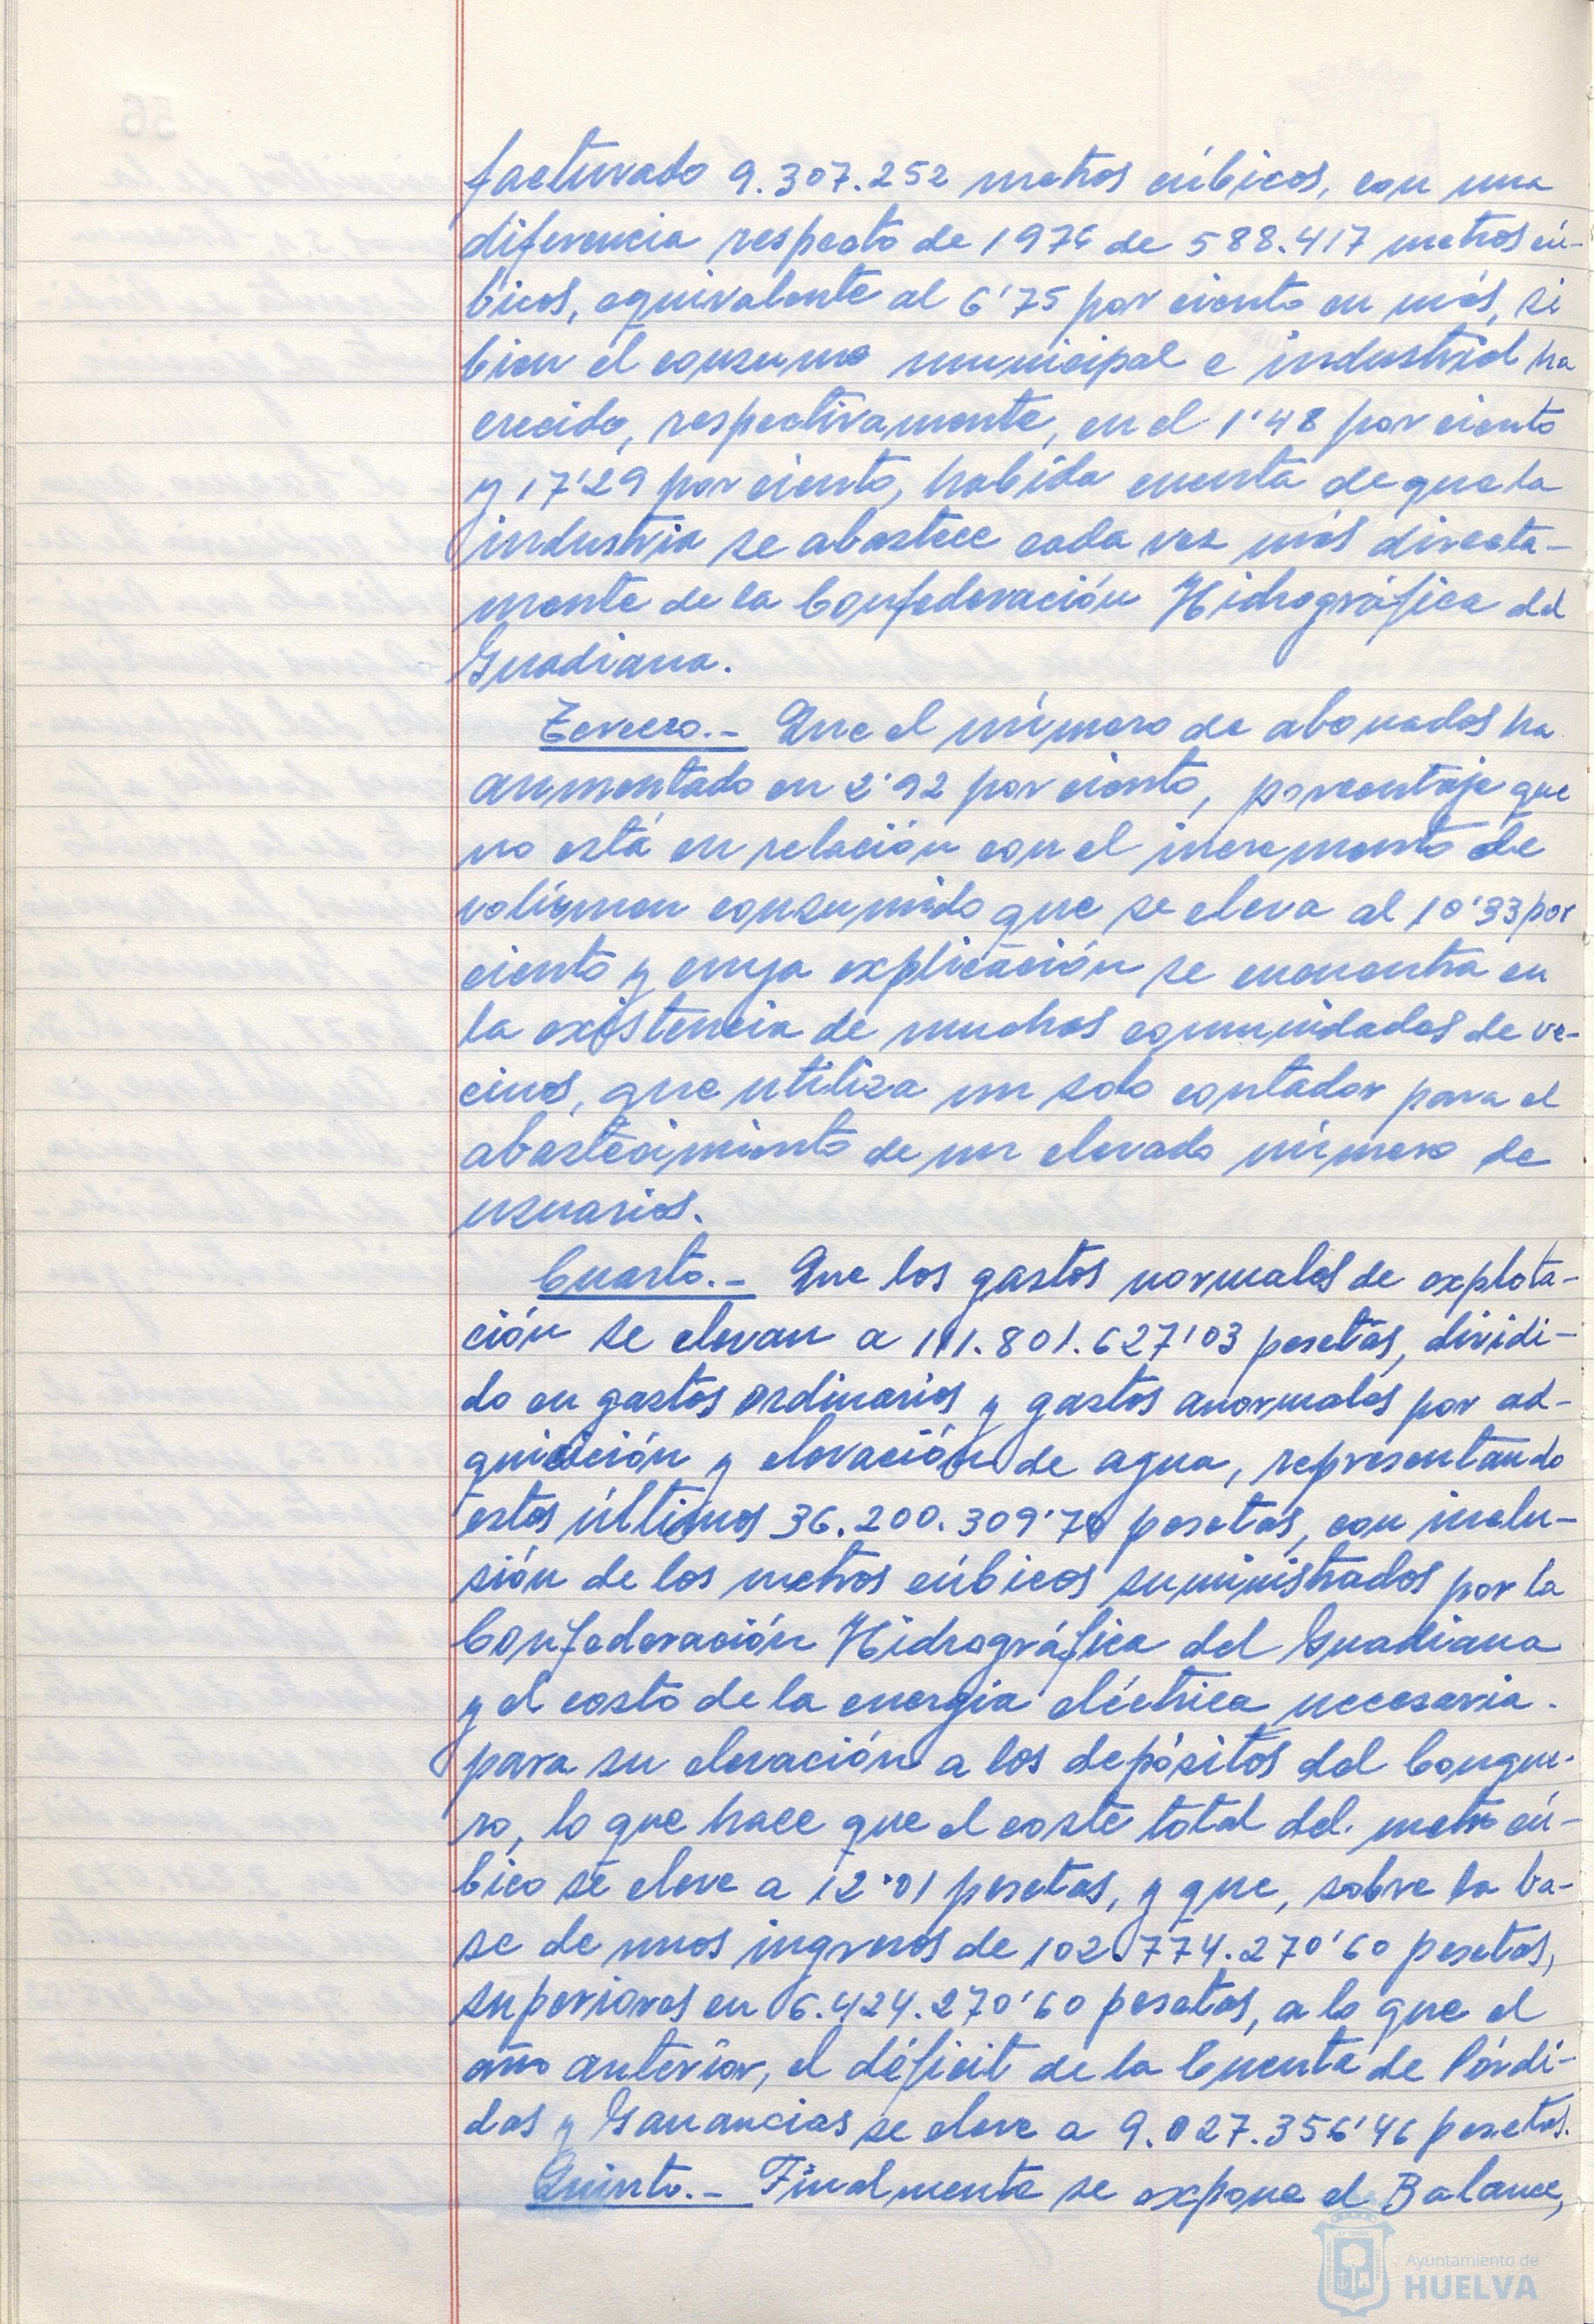 facturado 9.307.252 metros cúbicos, con una
diferencia respecto de 1976 de 588.417 metros cú-
bicos, equivalente al 6'75 por ciento en más, si
bien el consumo municipal e industrial ha
crecido, respectivamente, en el 1'48 por ciento
y 17'29 por ciento, habida cuenta de que la
industria se abastece cada vez más directa-
mente de la Confederación Hidrográfica del
Guadiana.
Tercero.- Que el número de abonados ha
aumentado en 2'92 por ciento, porcentaje que
no está en relación con el incremento de
volúmen consumido que se eleva al 10'33 por
ciento y cuya explicación se encuentra en
la existencia de muchas comunidades de ve-
cinos, que utiliza un solo contador para el
abastecimiento de un elevado número de
usuarios.
Cuarto.- Que los gastos normales de explota-
ción se elevan a 111.801.627'03 pesetas, dividi-
do en gastos ordinarios y gastos anormales por ad-
quisición y elevación de agua, representando
estos últimos 36.200.309'70 pesetas, con inclu-
sión de los metros cúbicos suministrados por la
Confederación Hidrográfica del Guadiana
y el costo de la energía eléctrica necesaria
para su elevación a los depósitos del Conque-
ro, lo que hace que el coste total del metro cú-
bico se eleve a 12'01 pesetas, y que, sobre la ba-
se de unos ingresos de 102.774.270'60 pesetas,
superiores en 6.424.270'60 pesetas, a lo que el
año anterior, el déficit de la Cuenta de Pérdi-
das y Ganancias se eleve a 9.027.356'46 pesetas.
Quinto.- Finalmente se expone el Balance,
Ayuntamiento de
HUELVA